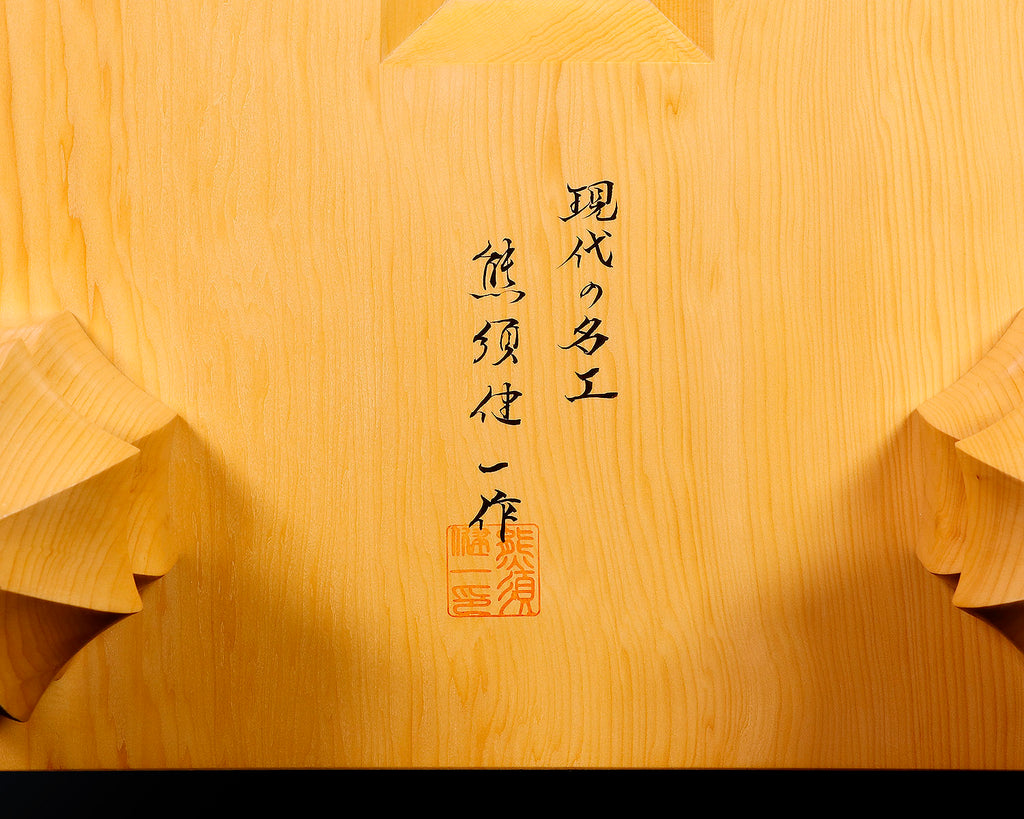 現代の名工
熊須健一作
熊須
健一印